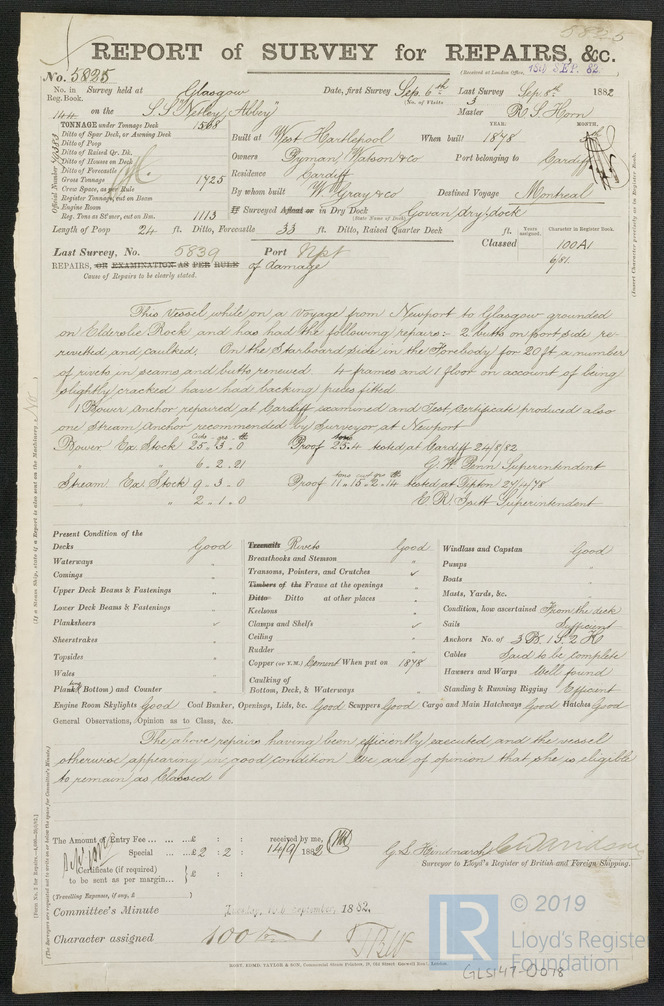 5825
REPORT of SURVEY for REPAIRS, &c.
(Received at London Office, 15th SEP. 82
No. 5825
No. in Reg. Book. Survey held at Glasgow Date, first Survey Sep. 6th Last Survey Sep. 8th 1882
(No. of Visits 3
144 on the S.S. "Netley Abbey" Master R. S. Horn
TONNAGE under Tonnage Deck 1568
Ditto of Spar Deck, or Awning Deck
Ditto of Poop
Ditto of Raised Qr. Dk.
Ditto of Houses on Deck
Ditto of Forecastle
Gross Tonnage 1725
Crew Space, as per Rule
Register Tonnage, cut on Beam
Engine Room
Reg. Tons as St'mer, cut on Bm. 1113
Official Number
YEAR. MONTH.
Built at West Hartlepool When built 1878
Owners Pyman Watson & co Port belonging to Cardiff
Residence Cardiff
By whom built W. Gray & co Destined Voyage Montreal
If Surveyed Afloat or in Dry Dock Govan dry dock
(State Name of Dock)
Length of Poop 24 ft. Ditto, Forecastle 33 ft. Ditto, Raised Quarter Deck ft.
Years assigned. Character in Register Book.
Classed 100A1
6/81
(Insert Character precisely as in Register Book.)
Last Survey, No. 5839 Port Npt
REPAIRS, OR EXAMINATION AS PER RULE of damage
Cause of Repairs to be clearly stated.
This Vessel while on a Voyage from Newport to Glasgow grounded
on Elderslie Rock and has had the following repairs:- 2 butts on port side re-
rivetted and caulked. On the Starboard side in the Forebody for 20 ft a number
of rivets in seams and butts renewed 4 frames and 1 floor on account of being
slightly cracked have had backing pieces fitted
1 Bower Anchor repaired at Cardiff examined and Test Certificate produced also
one Stream Anchor recommended by Surveyor at Newport
Bower Ex. Stock 25 . 3 . 0 Proof 25.4 tested at Cardiff 24/8/82
" " 6 . 2 . 21 G. W. Penn Superintendent
Stream Ex. Stock 9 . 3 . 0 Proof 11 . 15 . 2 . 14 tested at Tipton 27/4/78
" 2 . 1 . 0 Superintendent
(If a Steam Ship, state if a Report is also sent on the Machinery. No
Present Condition of the
Decks Good
Waterways "
Comings "
Upper Deck Beams & Fastenings "
Lower Deck Beams & Fastenings "
Planksheers ✓
Sheerstrakes "
Topsides "
Wales "
Plank(Bottom) and Counter "
Treenails Rivets Good
Breasthooks and Stemson "
Transoms, Pointers, and Crutches ✓
Timbers of the Frame at the openings "
Ditto Ditto at other places "
Keelsons "
Clamps and Shelfs ✓
Ceiling "
Rudder "
Copper (or Y.M.) Cement When put on 1878
Caulking of
Bottom, Deck, & Waterways "
Windlass and Capstan Good
Pumps "
Boats "
Masts, Yards, &c. "
Condition, how ascertained From the deck
Sails Sufficient
Anchors No. of 3 B. 1 S. 2 K
Cables Said to be complete
Hawsers and Warps Well found
Standing & Running Rigging Efficient
Engine Room Skylights Good Coal Bunker, Openings, Lids, &c. Good Scuppers Good Cargo and Main Hatchways Good Hatches Good
General Observations, Opinion as to Class, &c.
The above repairs having been efficiently executed and the vessel
otherwise appearing in good condition We are of opinion that she is eligible
to remain as Classed
(The Surveyors are requested not to write on or below the space for Committee's Minute.)
[Form No. 3 for Repairs
The Amount of Entry Fee ... £ : : received by me,
Special ... £ 2 : 2 : 14/9/ 1882
(Certificate (if required) to be sent as per margin... £ : :
(Travelling Expenses, if any, £ )
G. S. Hindmarsh C. Davidson
Surveyor to Lloyd's Register of British and Foreign Shipping.
Committee's Minute Tuesday, September, 1882.
Character assigned 100 A 1
© 2019
LR
Lloyd's Register
Foundation
GLS147-0078